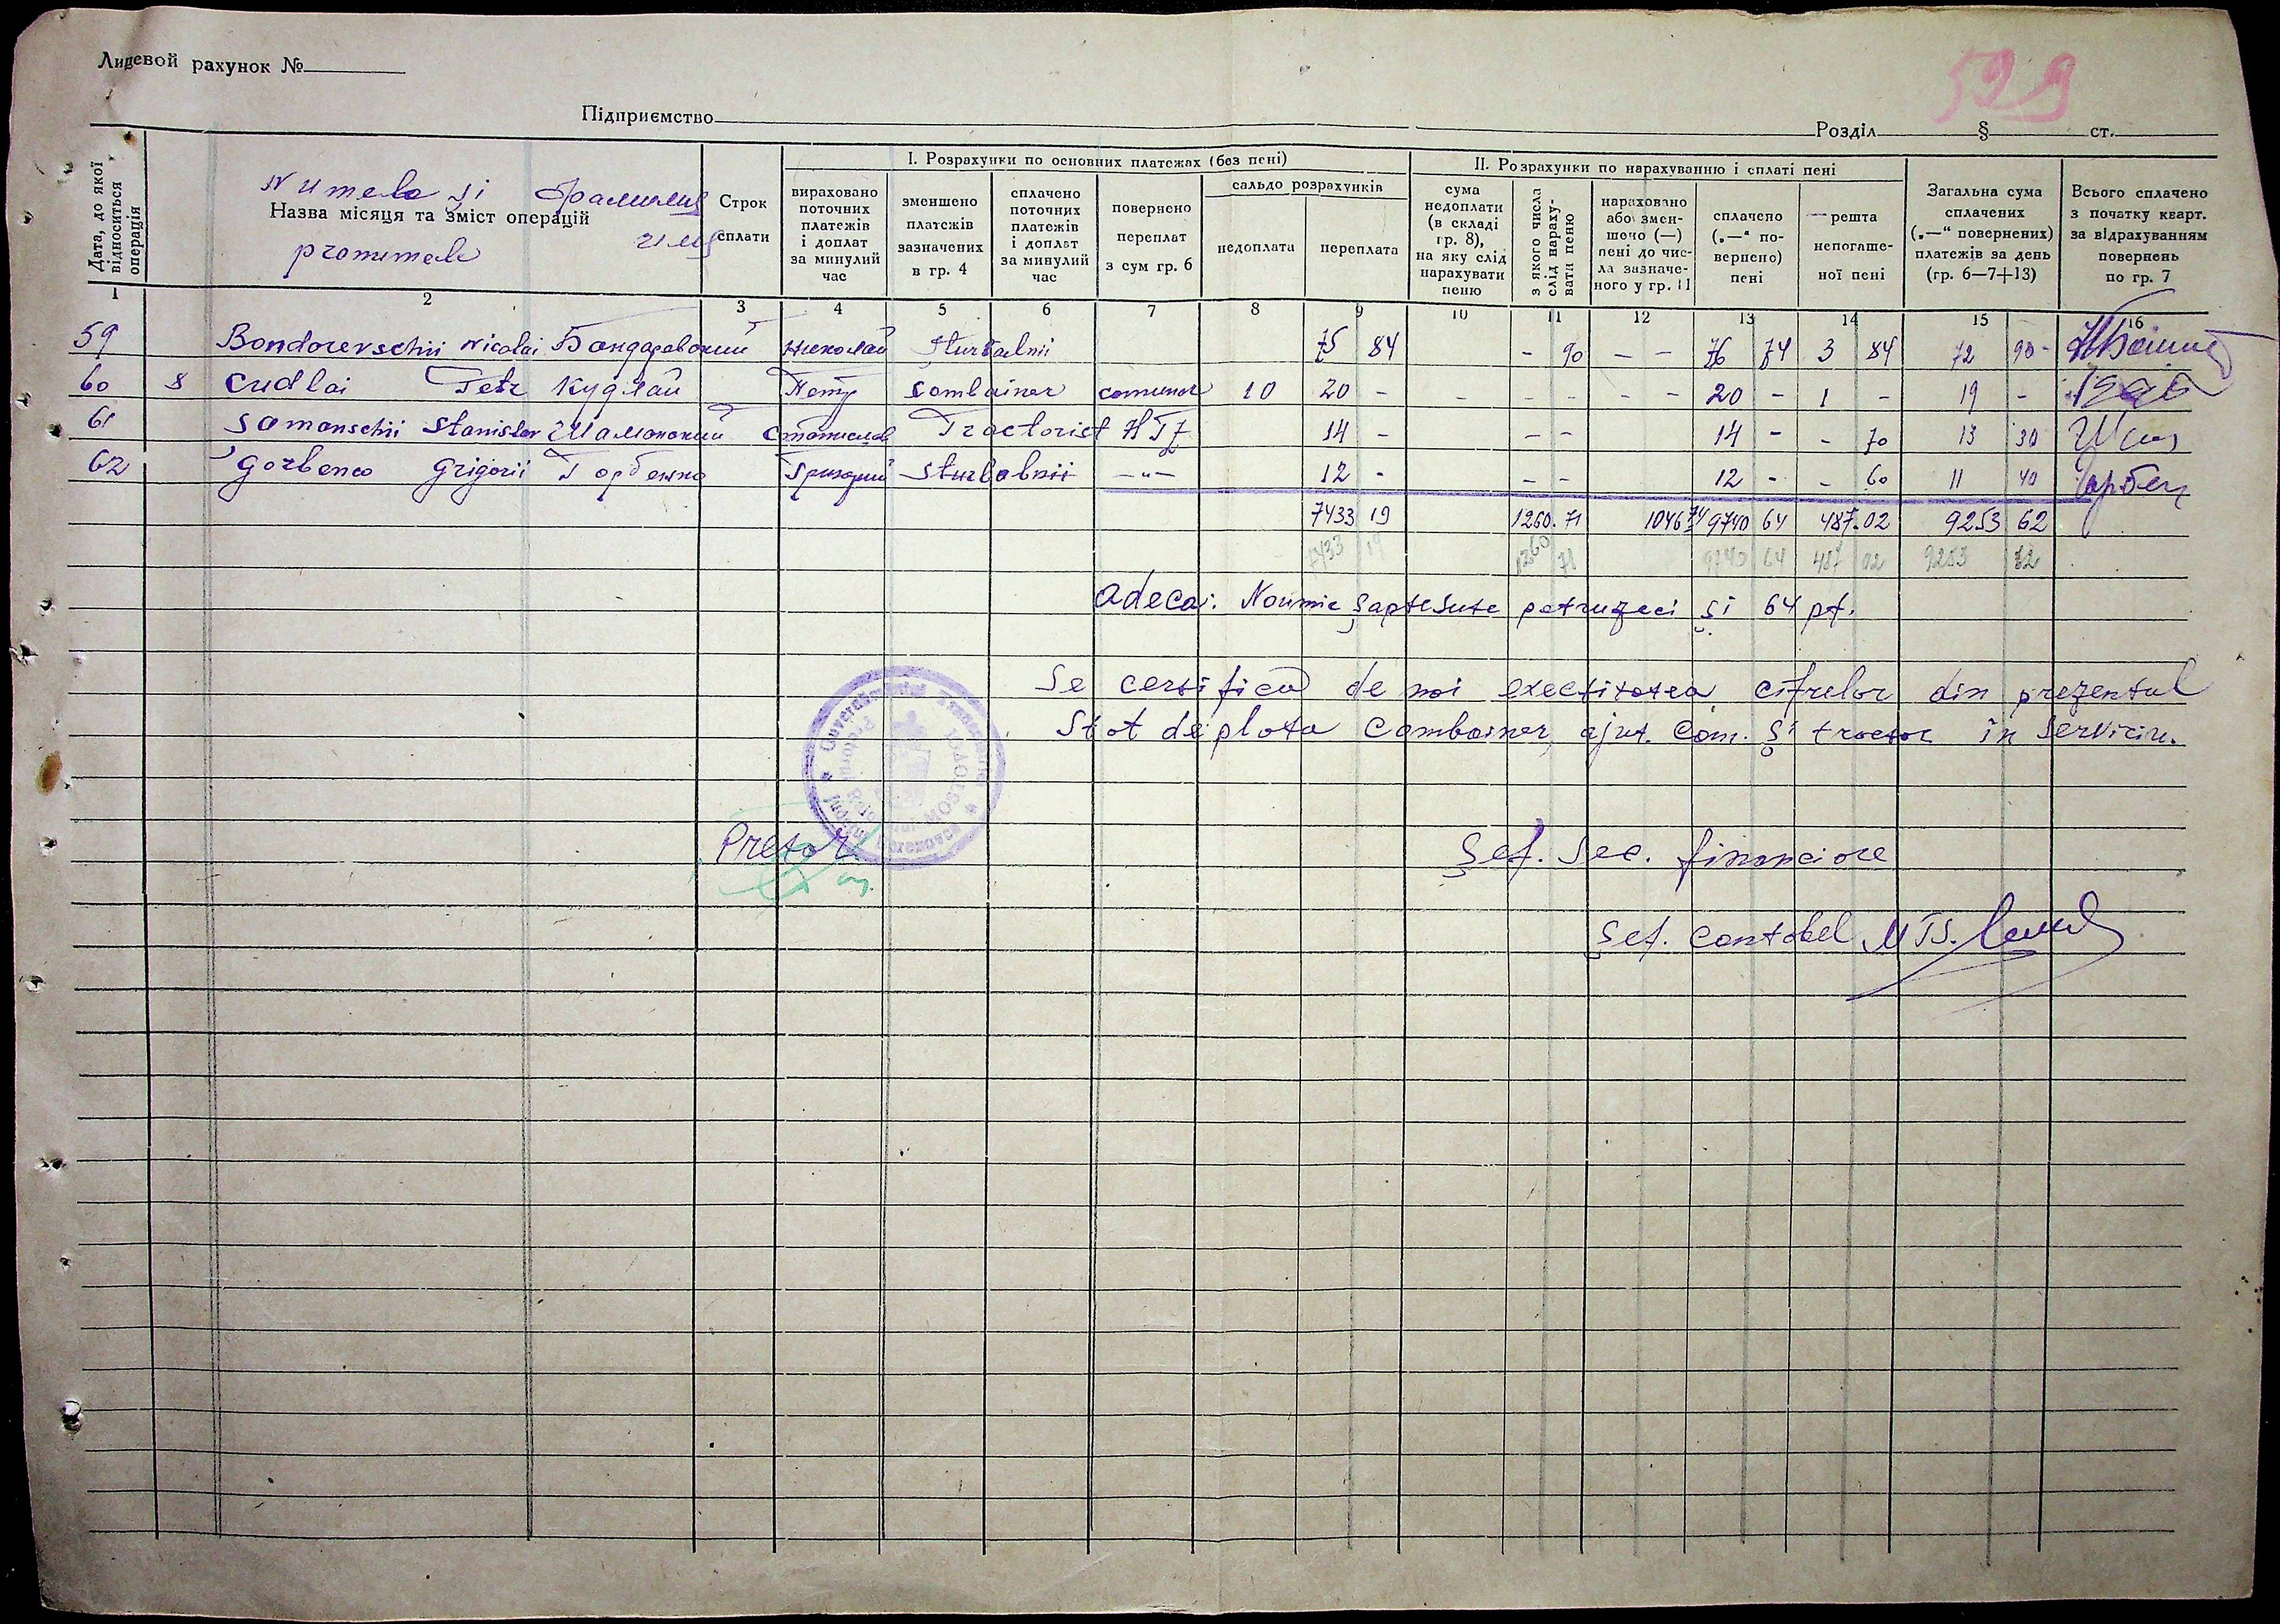 Лицевой рахунок №
599
Підприємство Розділ § ст.
Дата, до якої відноситься операція
Numele și Фамилия
Назва місяця та зміст операцій
pronumele имя
Строк сплати
I. Розрахунки по основних платежах (без пені)
вираховано поточних платежів і доплат за минулий час
зменшено платежів зазначених в гр. 4
сплачено поточних платежів і доплат за минулий час
повернено переплат з сум гр. 6
сальдо розрахунків
недоплата переплата
II. Розрахунки по нарахуванню і сплаті пені
сума недоплати (в складі гр. 8), на яку слід нарахувати пеню
з якого числа слід нараху-вати пеню
нараховано або змен-шено (—) пені до чис-ла зазначе-ного у гр. 11
сплачено („—“ по-вернено) пені
решта непогаше-ної пені
Загальна сума сплачених („—“ повернених) платежів за день (гр. 6—7+13)
Всього сплачено з початку кварт. за відрахуванням повернень по гр. 7
1 2 3 4 5 6 7 8 9 10 11 12 13 14 15 16
59 Bondorevschii Nicolai Бондаровский Николай Sturvalnii 75 84 - 90 - - 76 74 3 84 72 90 -
60 8 Cudlai Petr Кудлай Петр Combainer comunar 10 20 - - - - - - 20 - 1 - 19 -
61 Samanschii Stanislav Шаманский Станислав Tractorist HTZ 14 - - - 14 - - 70 13 30
62 Gorbenco Grigorii Горбенко Григорий Sturvalnii -"- 12 - - - 12 - - 60 11 40 Горбен
7433 19 1260.71 1046 74 9740 64 487.02 9253 62
7433 19 1260 71 9740 64 487 02 9253 62
Adeca: Nouămie șaptesute patruzeci și 64 pf.
Se certifică de noi exactitatea cifrelor din prezentul
Stat de plata combainer, ajut. com. și tractor în serviciu.
Guvernământul Transnistriei
Pretura Raionului MOSTOVOI
Județul Berezovca
Pretor
Șef. Sec. financiare
Șef. Contabel MTS.